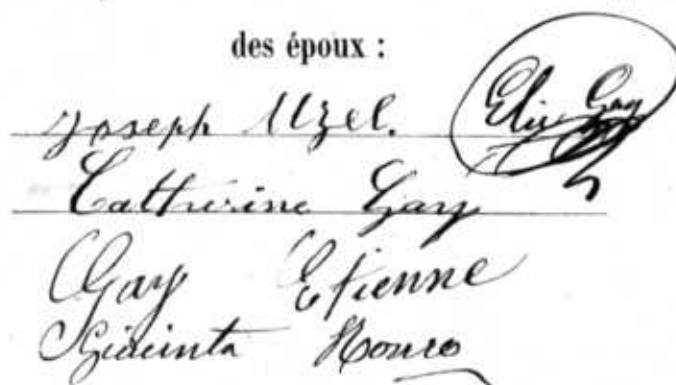 des époux :
Joseph Uzel.
Elie Gay
Catherine Gay
Gay Etienne
Giacinta